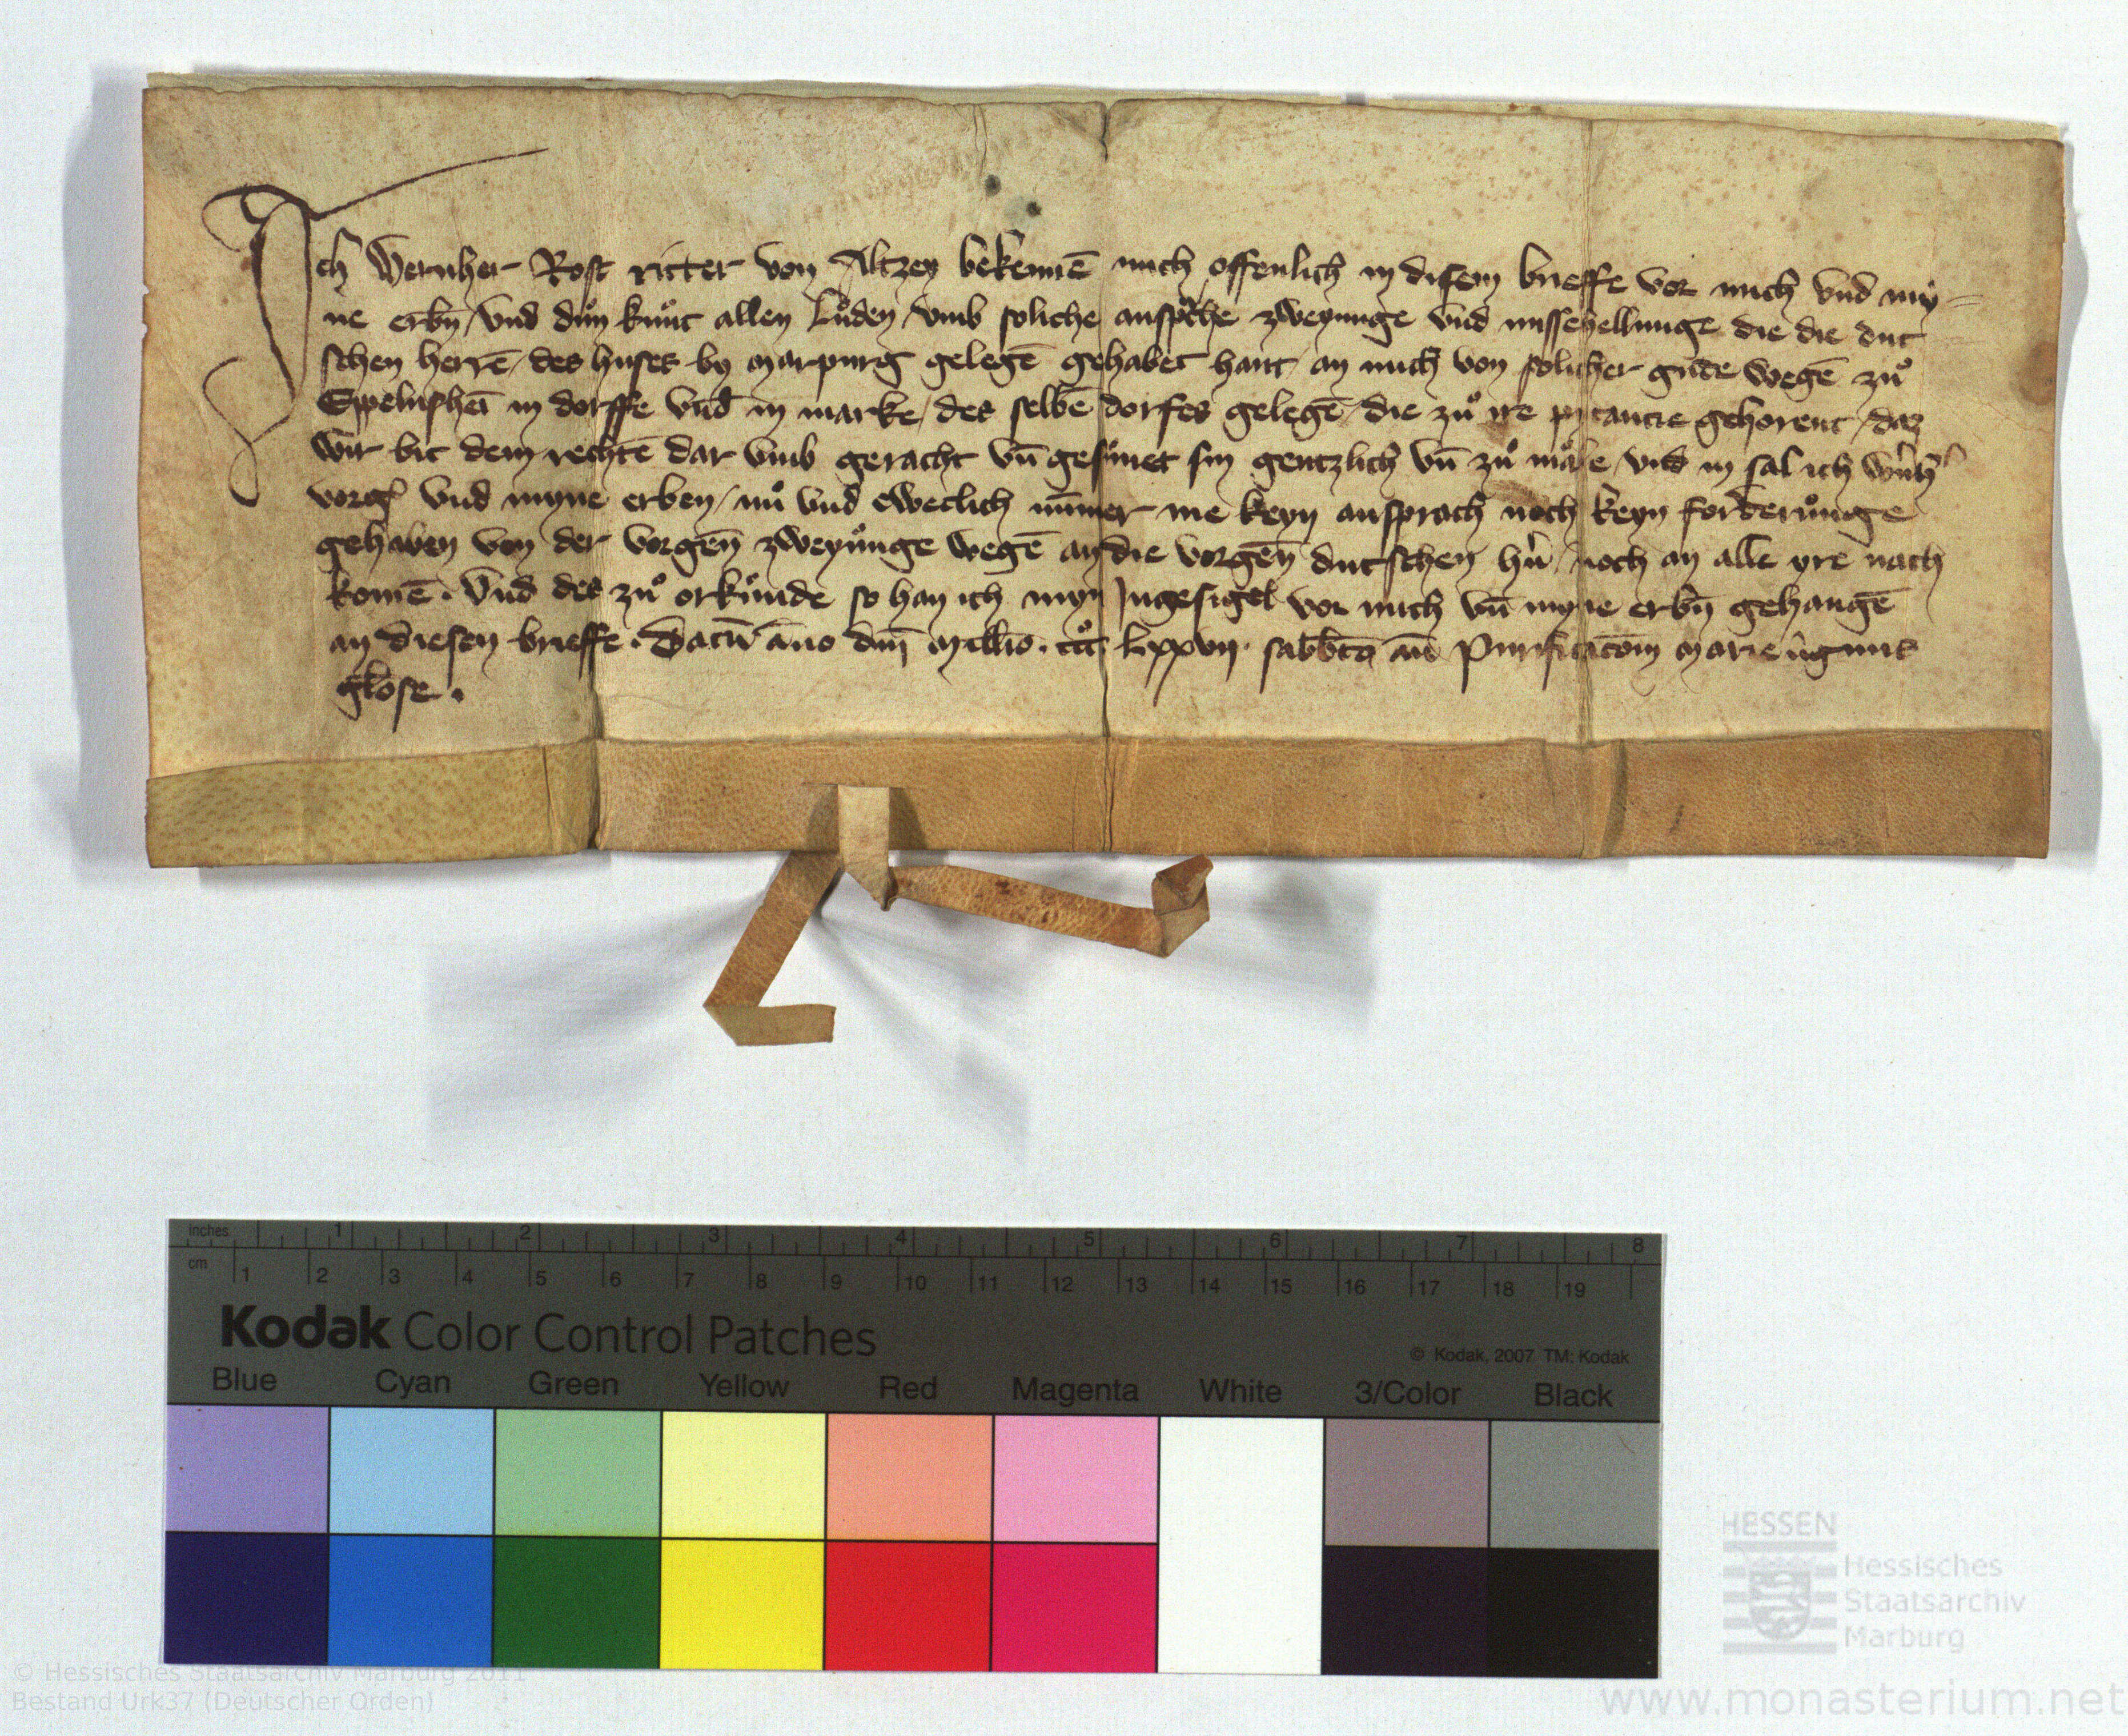 Ich Wernher Rost ritter von Altzey bekennē mich offenlich in disem brieffe vor mich vnd my-
ne erbn̄ / vnd důn kůnt allen Lůden / vmb soliche ansp̊che zweyunge vnd missehellunge die die dut
schen herrē / des huses by Marpurg gelegē gehabet hant an mich von solicher gude wegē zů
Eppelnsheī in dorffe vnd in marke / des selbē dorfes gelegē / die zů ire pytancie gehorent / daz
wir bit dem rechtē dar vmb geracht vn̄ gesůnet sin gentzlich vn̄ zů måle / vnd in sal ich wn̄h
vorgͤ vnd myne erben / nů vnd eweclich nūmer me keyn ansprach noch keyn forderůnge
gehaben von der vorgen̄ zweyůnge wegē an die vorgen̄ dutschen hn̄ / noch an alle yre nach
komē . Vnd des zů orkůnde so han ich myn Ingesigel vor mich vn̄ myne erbn̄ gehangē
an diesen brieffe . Datū āno dm̄ Millīo . ccc̊ Lxxvij . sabb̄to an̄ Purificacōm Marie v̂ginis
gl̄ose .
inches 1 2 3 4 5 6 7 8
cm 1 2 3 4 5 6 7 8 9 10 11 12 13 14 15 16 17 18 19
Kodak Color Control Patches
© Kodak, 2007 TM: Kodak
Blue Cyan Green Yellow Red Magenta White 3/Color Black
HESSEN
Hessisches
Staatsarchiv
Marburg
© Hessisches Staatsarchiv Marburg 2011
Bestand Urk37 (Deutscher Orden)
www.monasterium.net